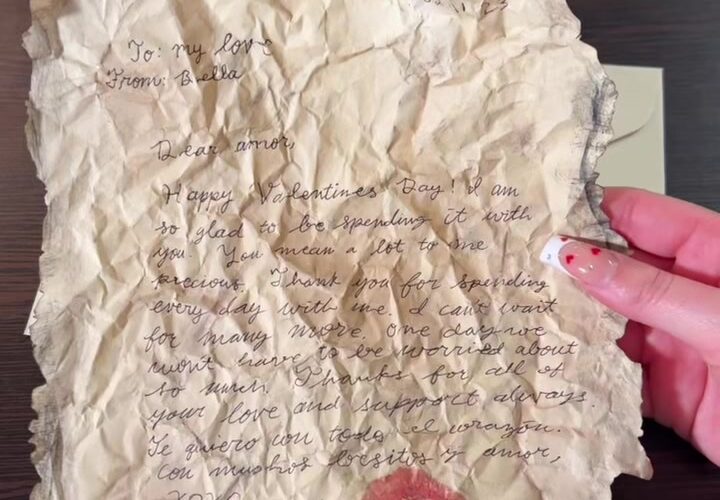 11 23
To: my love
From: Bella
Dear amor,
Happy Valentines Day! I am
so glad to be spending it with
you. You mean a lot to me
precious. Thank you for spending
every day with me. I can't wait
for many more. One day we
won't have to be worried about
so much. Thanks for all of
your love and support always.
Te quiero con todo el corazón.
con muchos besitos y amor,
XOXO